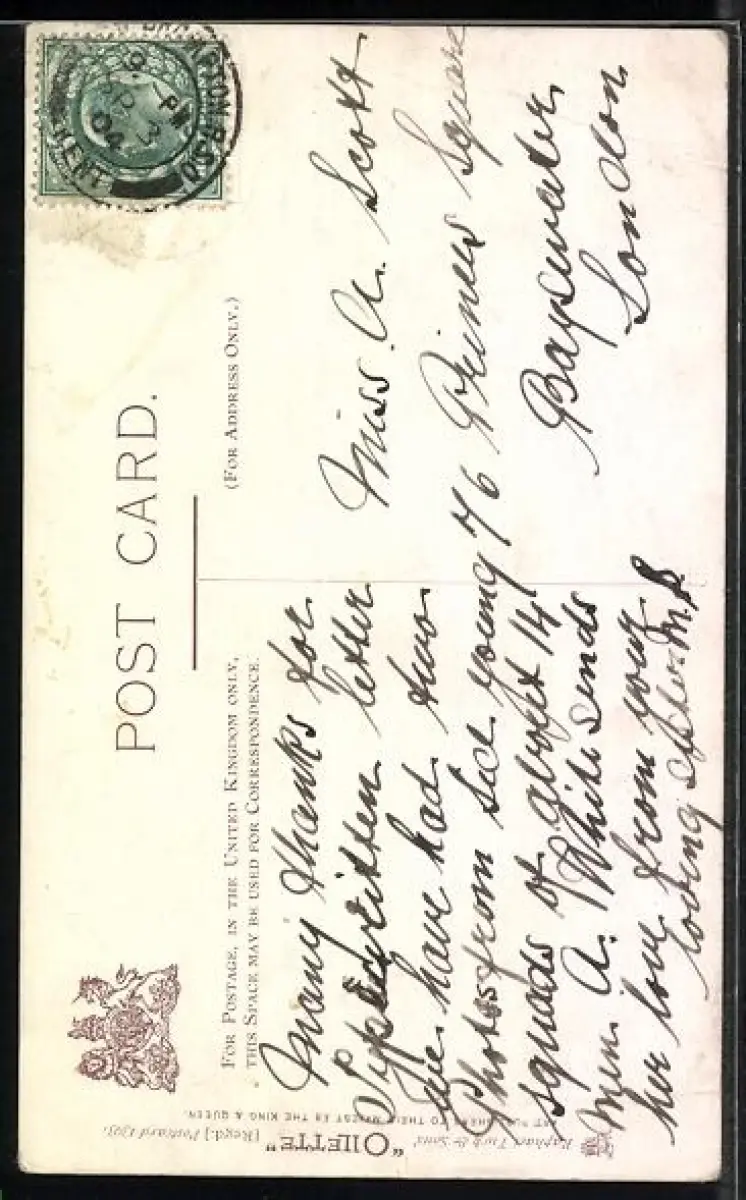 POST CARD.
FOR POSTAGE, IN THE UNITED KINGDOM ONLY,
THIS SPACE MAY BE USED FOR CORRESPONDENCE.
(FOR ADDRESS ONLY.)
Many thanks for
letter
we have had two
Photos from Sid young
squads of about 14
men. A. White sends
her love from your
loving sister M.S.
Miss A. Scott
76 Princes Square
Bayswater
London
BROMPTON R.S.O.
PM
SP 3
04
KENT
Raphael Tuck & Sons' "OILETTE" [Regd.] Postcard
ART PUBLISHERS TO THEIR MAJESTIES THE KING & QUEEN.